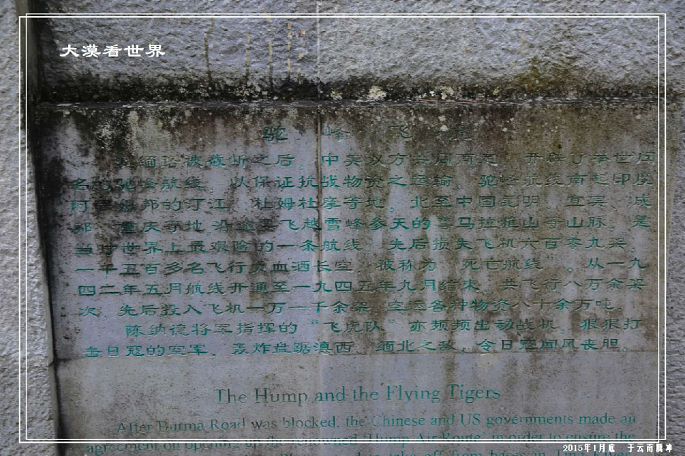 大漠看世界
驼峰飞
缅公路被截断之后，中美双方共同商定，开辟了举世闻
名的驼峰航线，以保证抗战物资之运输。驼峰航线南起印度
阿萨姆邦的丁江、杜姆杜摩等地，北至中国昆明、宜宾、成
都、重庆等地，沿途要飞越雪峰参天的喜马拉雅山等山脉，是
当时世界上最艰险的一条航线，先后损失飞机六百零九架，
一千五百多名飞行员血洒长空，被称为“死亡航线”。从一九
四二年五月航线开通至一九四五年九月结束，共飞行八万余架
次，先后投入飞机一万一千余架，空运各种物资八十余万吨。
陈纳德将军指挥的“飞虎队”亦频频出动战机，狠狠打
击日寇的空军，轰炸盘踞滇西、缅北之敌，令日寇闻风丧胆。
The Hump and the Flying Tigers
After Burma Road was blocked, the Chinese and US governments made an
agreement on opening up the renowned Hump Air Route, in order to ensure the
2015年1月底 于云南腾冲